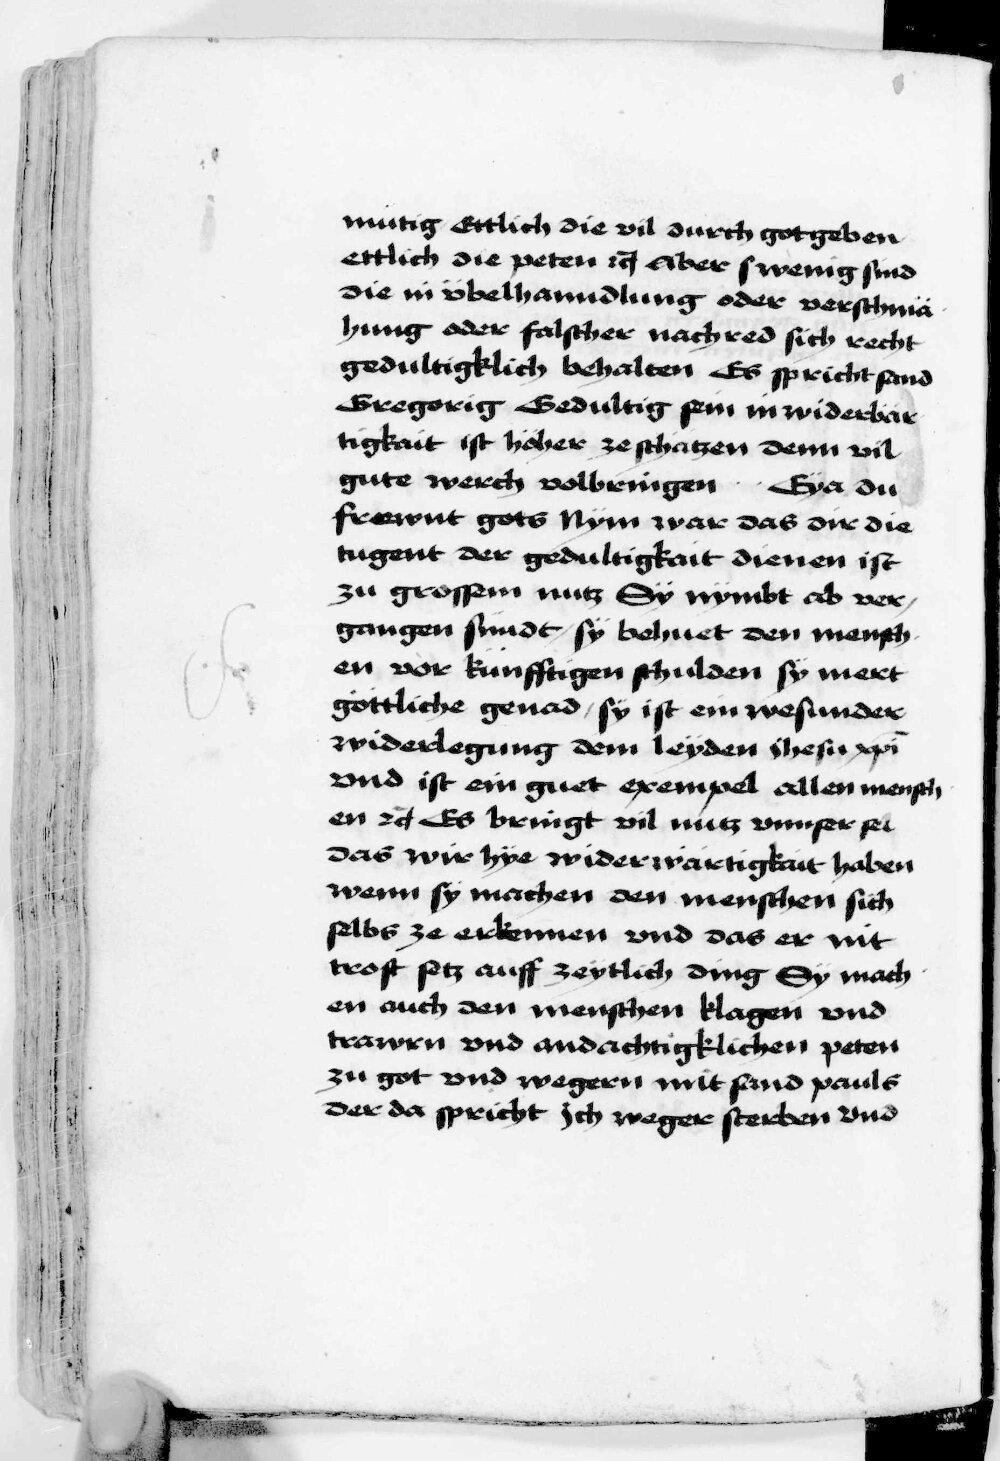 mütig Ettlich die vil durch got geben
ettlich die peten ꝛc̄ Aber wenig sind
die in übelhanndlung oder verschmä
hung oder falscher nachred sich recht
gedultigklich behalten Es spricht sand
Gregorig Gedultig sein in widerbär
tigkait ist höher ze schatzen denn vil
gute werch volbringen Eÿa du
frewnt gots Nÿm war das dir die
tugent der gedultigkait dienen ist
zu grossem nutz Sÿ nÿmbt ab ver/
gangen sündt / sÿ behuet den mensch
en vor künfftigen schulden sÿ mert
göttliche genad / sÿ ist ein wesunder
widerlegung dem leÿden jhesu xp̄i
vnd ist ein guet exempel allen mensch
en ꝛc̄ Es bringt vil nutz vnnser sel
das wir hÿe widerwärtigkait haben
wenn sÿ machen den menschen sich
selbs ze erkennen vnd das er nit
trost setz auff zeÿtlich ding Sÿ mach
en auch den menschen klagen vnd
trawrn vnd andachtigklichen peten
zu got vnd wegern mit sand pauls
der da spricht Ich weger sterben vnd